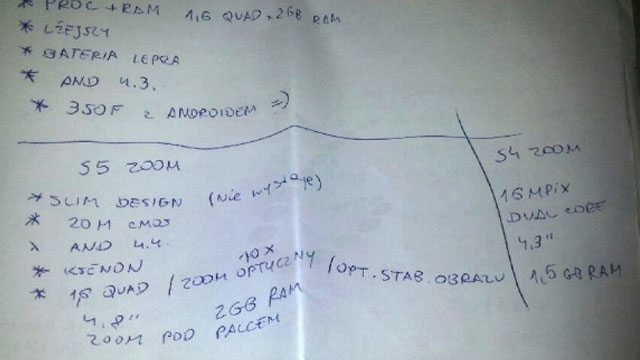 * PROC + RAM 1,6 QUAD + 2GB RAM
* LŻEJSZY
* BATERIA LEPSZA
* AND 4.3.
* 350F z ANDROIDEM =)
S5 ZOOM
* SLIM DESIGN (nie wystaje)
* 20M CMOS
* AND 4.4.
* KSENON
* 1,6 QUAD / ZOOM OPTYCZNY 10x / OPT. STAB. OBRAZU
4,8" 2GB RAM
ZOOM POD PALCEM
S4 ZOOM
16 MPIX
DUAL CORE
4,3"
1,5 GB RAM